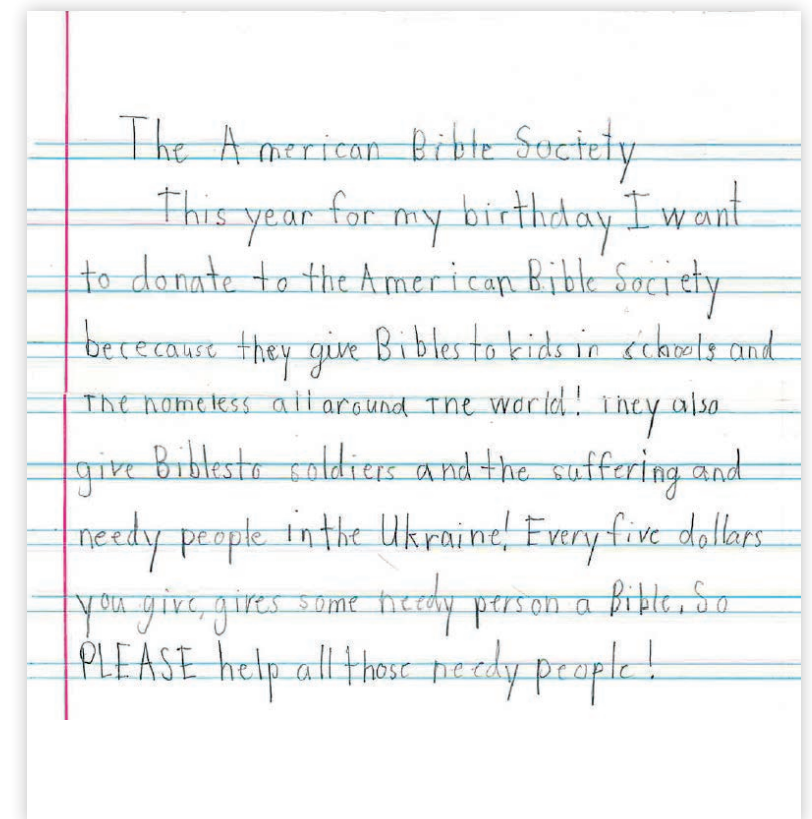 The American Bible Society
This year for my birthday I want
to donate to the American Bible Society
bececause they give Bibles to kids in schools and
the homeless all around the world! They also
give Bibles to soldiers and the suffering and
needy people in the Ukraine! Every five dollars
you give, gives some needy person a Bible. So
PLEASE help all those needy people!